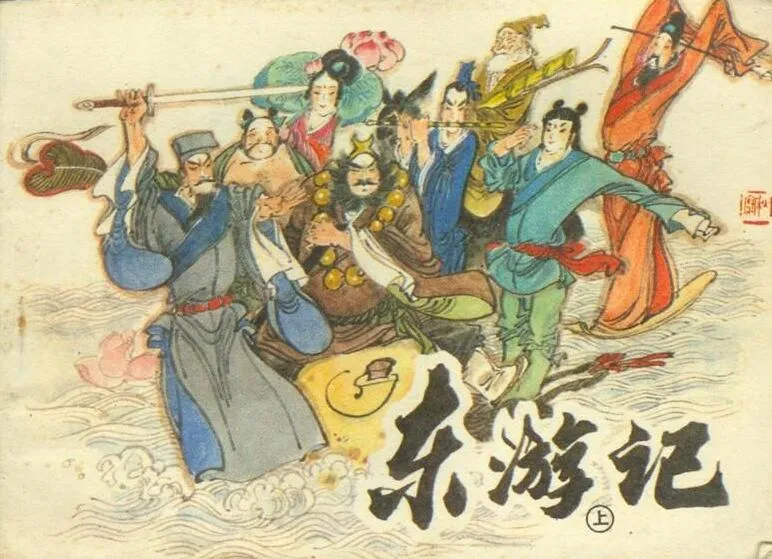 东游记
上